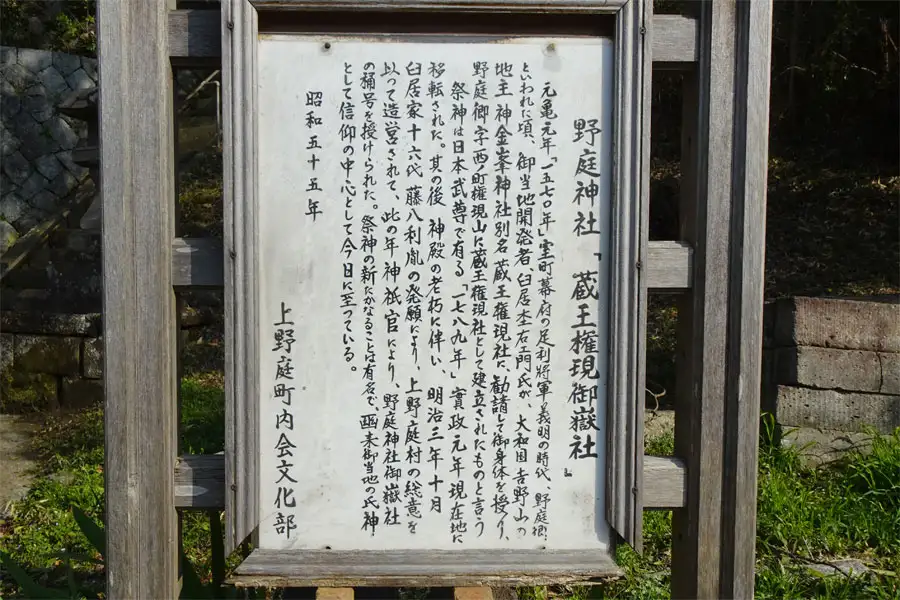 野庭神社「蔵王権現御嶽社」
元亀元年「一五七〇年」室町幕府の足利将軍義明の時代、野庭郷
といわれた頃、御当地開発者臼居杢右エ門氏が、大和国吉野山の
地主神金峯神社別名蔵王権現社に勧請して御身体を授り、
野庭郷字西ノ町権現山に蔵王権現社として建立されたものと言う
祭神は日本武尊で有る「一七八九年」寛政元年現在地に
移転された。其の後神殿の老朽に伴い、明治三年十月
臼居家十六代藤八利胤の発願により、上野庭村の総意を
以って造営されて、此の年神祇官により、野庭神社御嶽社
の称号を授けられた。祭神の新たかなることは有名で、爾来御当地の氏神
として信仰の中心として今日に至っている。
昭和五十五年
上野庭町内会文化部